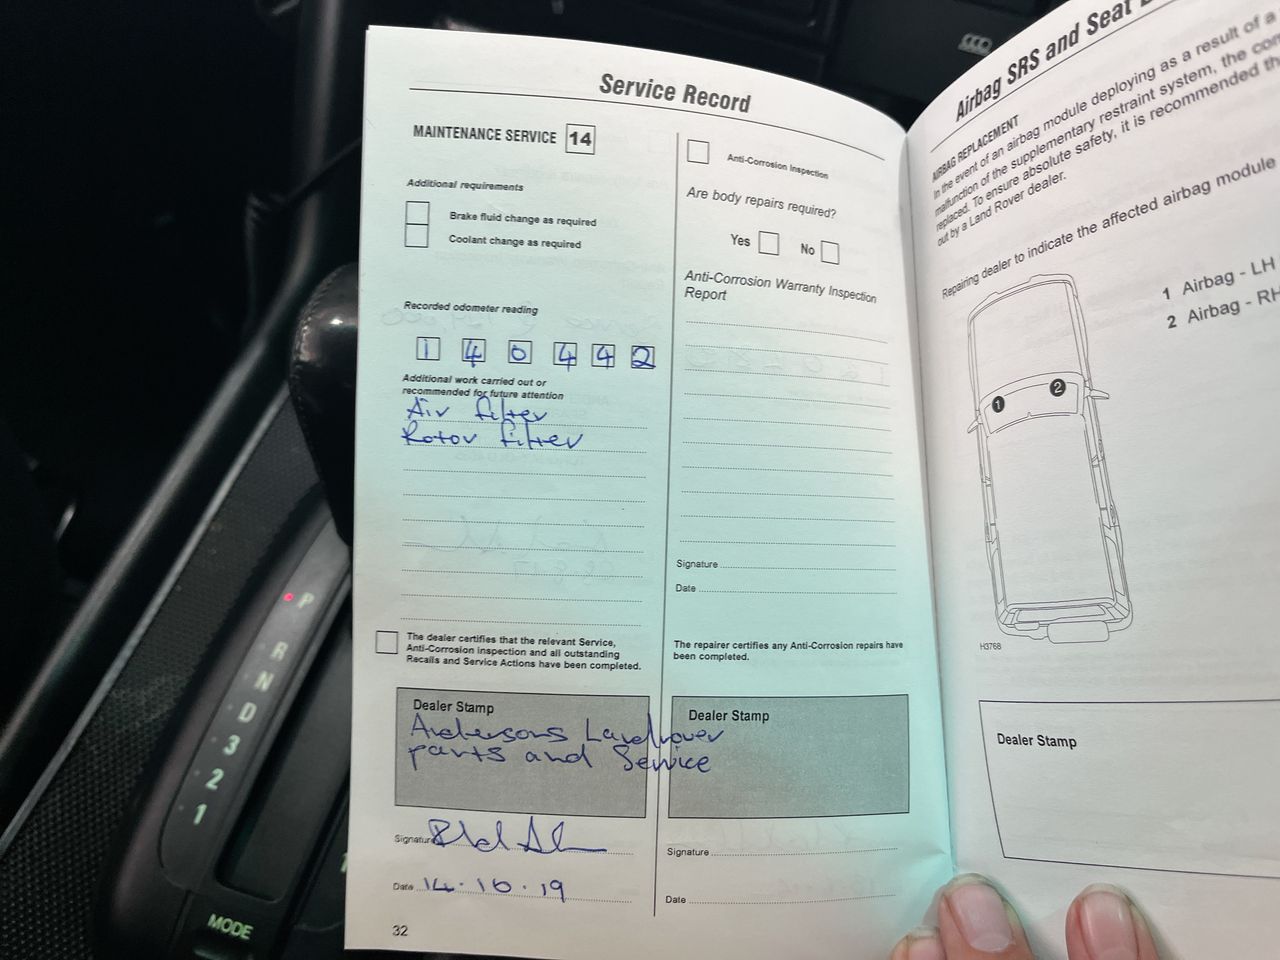 Service Record
MAINTENANCE SERVICE 14
Additional requirements
Brake fluid change as required
Coolant change as required
Recorded odometer reading
1 4 0 4 4 2
Additional work carried out or
recommended for future attention
Air filter
Rotor filter
The dealer certifies that the relevant Service,
Anti-Corrosion inspection and all outstanding
Recalls and Service Actions have been completed.
Dealer Stamp
Andersons Landrover
parts and Service
Signature
Date 14.10.19
32
Anti-Corrosion Inspection
Are body repairs required?
Yes No
Anti-Corrosion Warranty Inspection
Report
Signature
Date
The repairer certifies any Anti-Corrosion repairs have
been completed.
Dealer Stamp
Signature
Date
Airbag SRS and Seat
AIRBAG REPLACEMENT
In the event of an airbag module deploying as a result of a
malfunction of the supplementary restraint system, the
replaced. To ensure absolute safety, it is recommended
out by a Land Rover dealer.
Repairing dealer to indicate the affected airbag module
1 Airbag - LH
2 Airbag - RH
1
2
H3768
Dealer Stamp
P
R
N
D
3
2
1
MODE